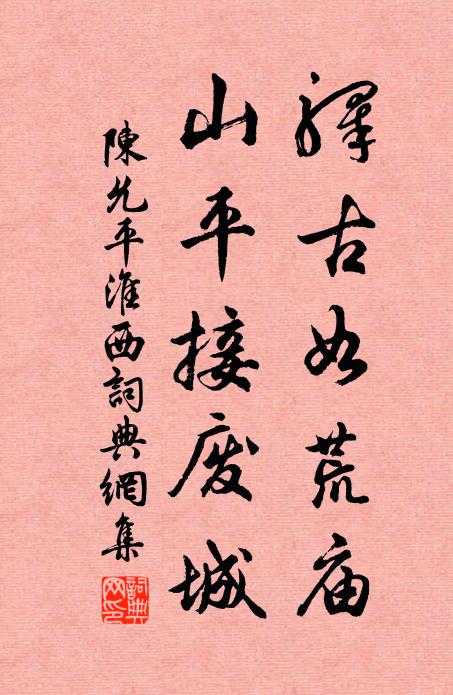 驛古如荒庙
山平接废城
陳允平淮西詞典網集
詞典网印